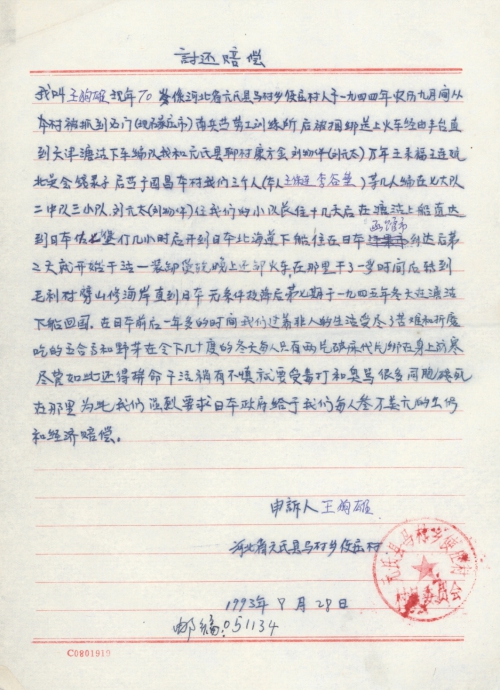 討还赔偿
我叫王的雄现年70岁係河北省元氏县马村乡侯庄村人于一九四四年农历九月间从
本村被抓到石门(现石家庄市)南兵营劳工训练所后被捆绑送上火车经由丰台直
到天津塘沽下车编队我和元氏县
北吴会锁
后至于因昌本村我们三个人(本人
)等几人编在七大队
二中队三小队.刘元太(刘
)任我们的小队长住十几天后在塘沽上船直达
函馆市
到日本
几小时后开到日本北海道下船住在日本
到达后第
2天就开始干活一装卸货说晚上还卸火车,在那里干了一学时间后转到
毛利村劈山修海岸直到日本无条件投降后第七期于一九四五年冬天在塘沽
下船回国.在日本前后一年多的时间我们过着非人的生活受尽了苦难和折磨
吃的五合面和野菜在令下几十度的冬天每人只有两片破麻代片绑在身上防寒
尽管如此还得拼命干活稍有不慎就要受毒打和臭骂很多同胞
在那里为此我们强烈要求日本政府给于我们每人叁万美元的
和经济赔偿。
申訴人王的雄
河北省元氏县马村乡侯庄村
1993年9月28日
邮编:051134
元氏县马村乡侯庄村
村民委员会
C0801919